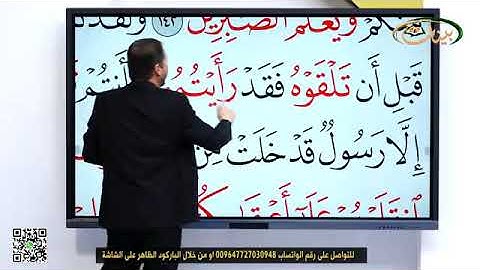 وَيَعْلَمَ الصَّٰبِرِينَ ١٤٢ وَلَقَدْ
قَبْلِ أَن تَلْقَوْهُ فَقَدْ رَأَيْتُمُ وَأَنتُمْ
إِلَّا رَسُولٌ قَدْ خَلَتْ مِن
للتواصل على رقم الواتساب 009647727030948 او من خلال الباركود الظاهر على الشاشة